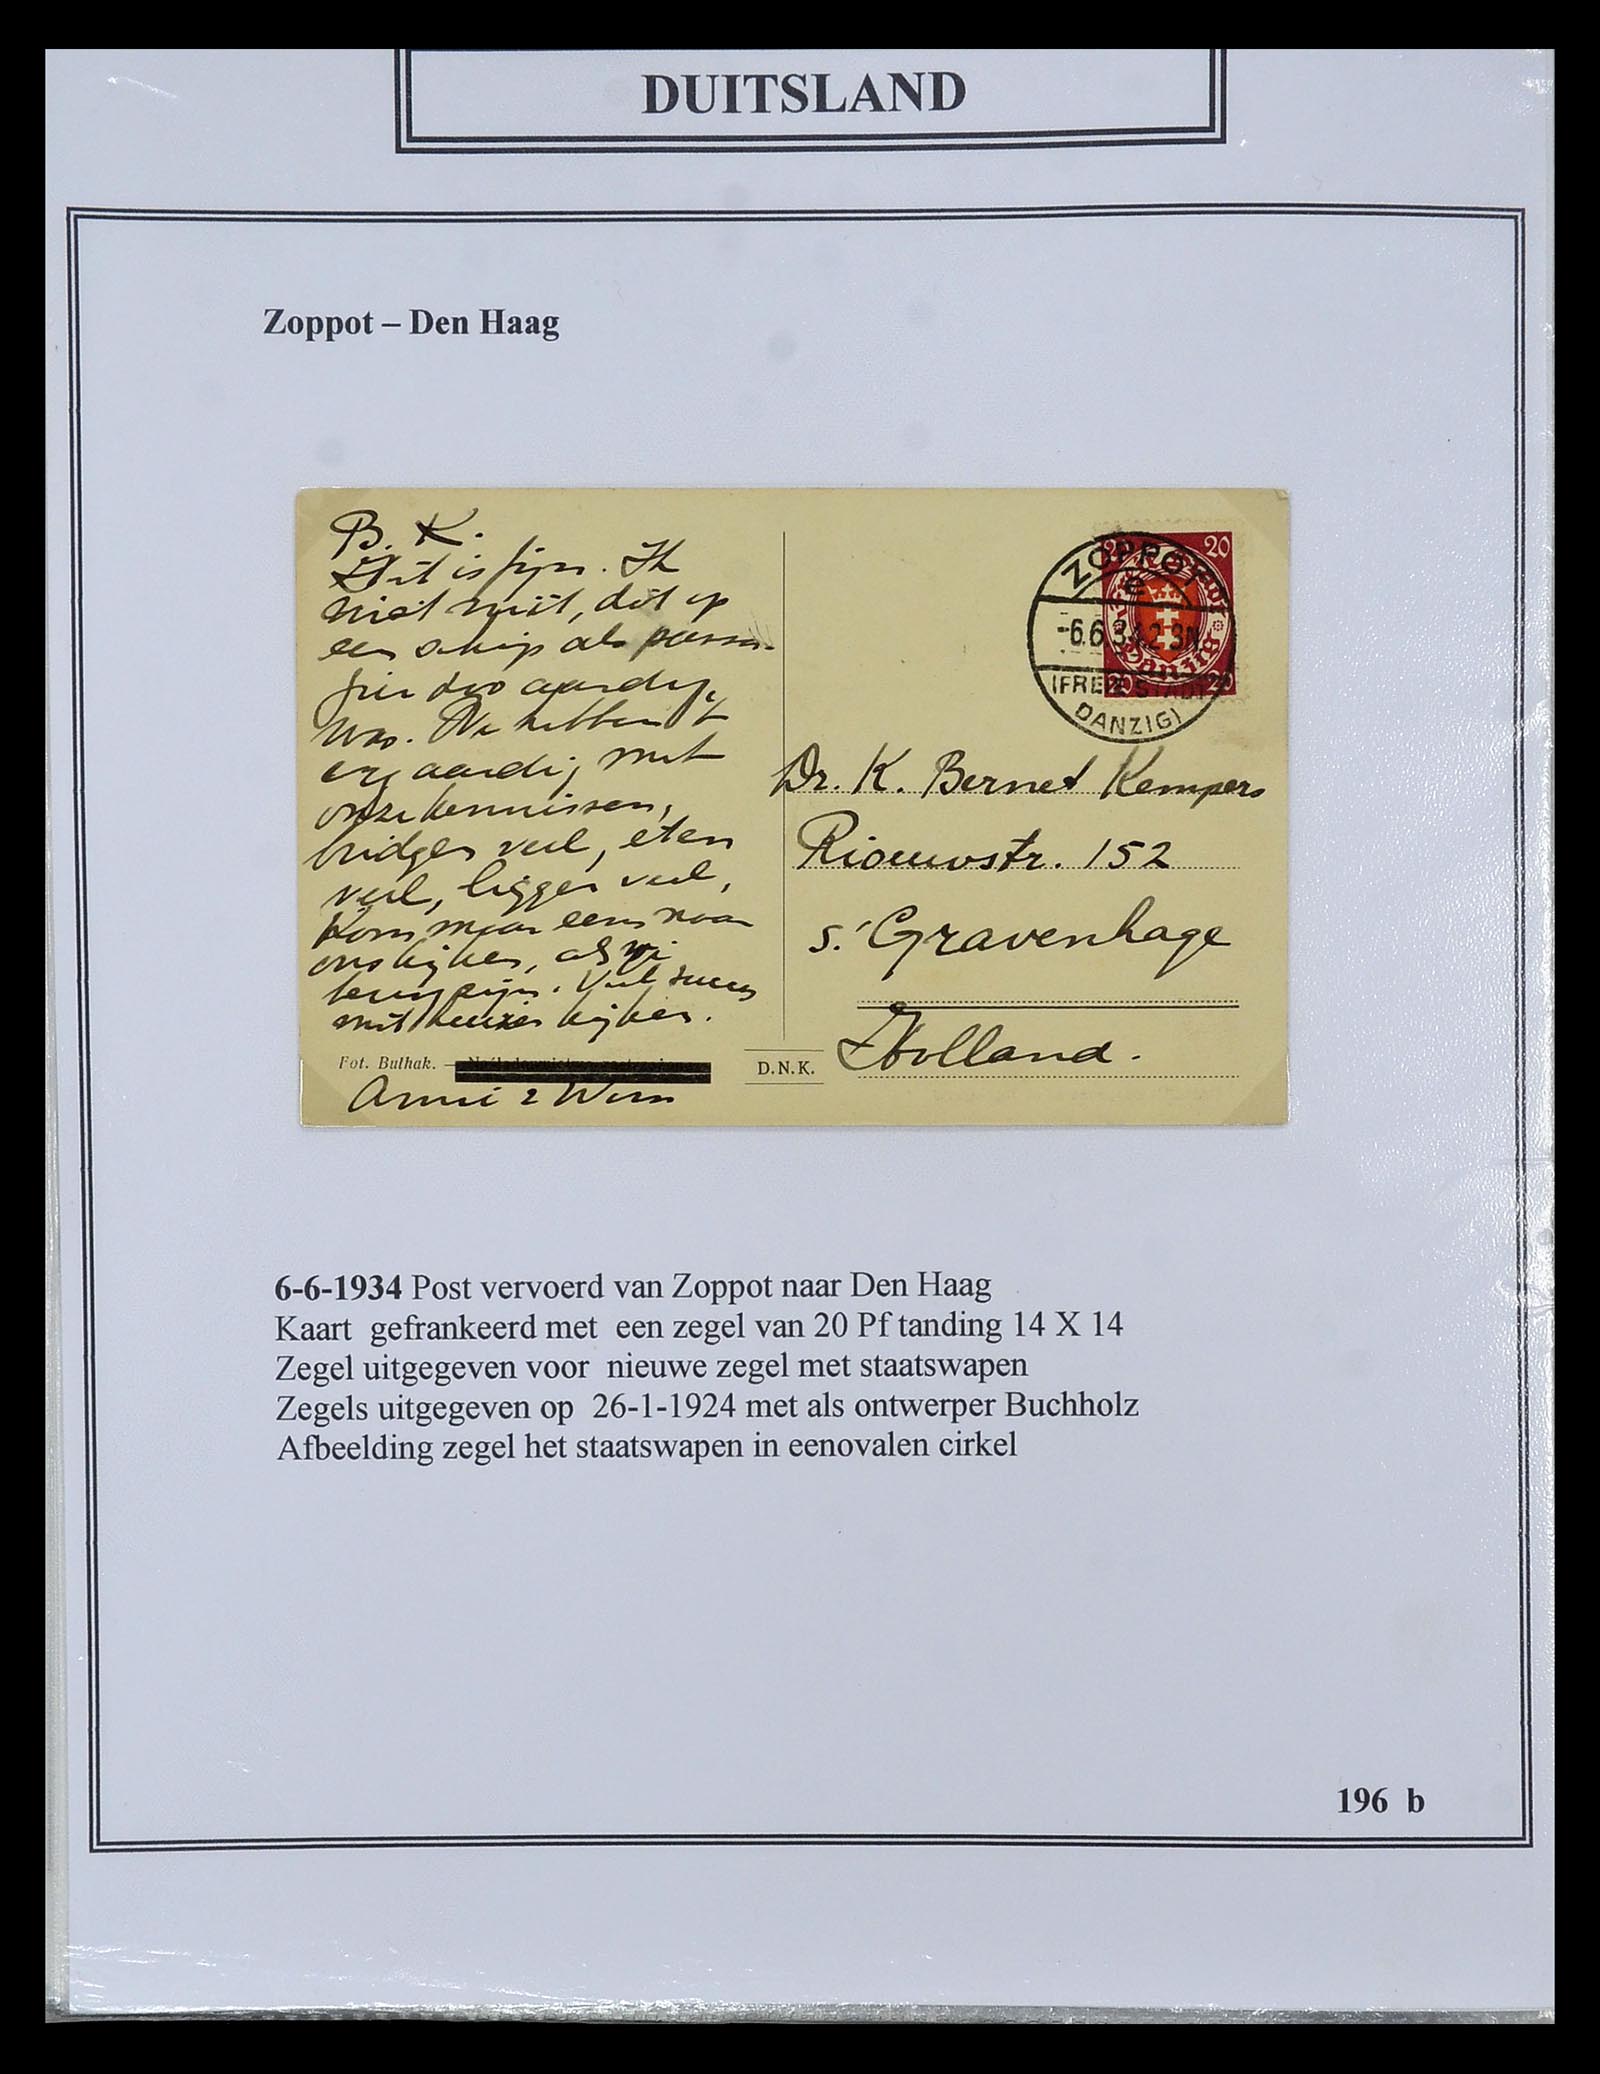 DUITSLAND
Zoppot – Den Haag
B. K.
Dit is fijn. Ik
niet, dat op
een schip als passa-
gier zoo aardig
was. We hebben 't
erg aardig met
onze kennissen,
bridgen veel, eten
veel, liggen veel,
Kom maar eens naar
ons kijken, als wij
terug zijn. Veel succes
met huizen kijken.
Fot. Bulhak. —
Annie & Wim
D.N.K.
20 20
Danzig
20 20
ZOPPOT
e
-6.6.34.2-3N
(FREIE STADT
DANZIG)
Dr. K. Bernet Kempers
Riouwstr. 152
s.'Gravenhage
Holland.
6-6-1934 Post vervoerd van Zoppot naar Den Haag
Kaart gefrankeerd met een zegel van 20 Pf tanding 14 X 14
Zegel uitgegeven voor nieuwe zegel met staatswapen
Zegels uitgegeven op 26-1-1924 met als ontwerper Buchholz
Afbeelding zegel het staatswapen in eenovalen cirkel
196 b